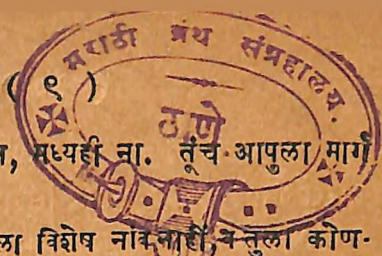 मराठी ग्रंथ संग्रहालय.
( ९ )
ठाणे
मध्यही ना. तूंच आपुला मार्ग
विशेष नांव नाहीं, व तुला कोण-